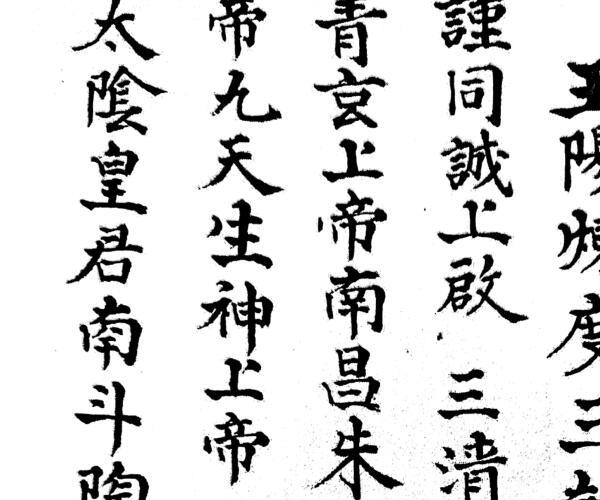 玉陽煉度三
謹同誠上啟　三清
青玄上帝南昌朱
帝九天生神上帝
太陰皇君南斗陶